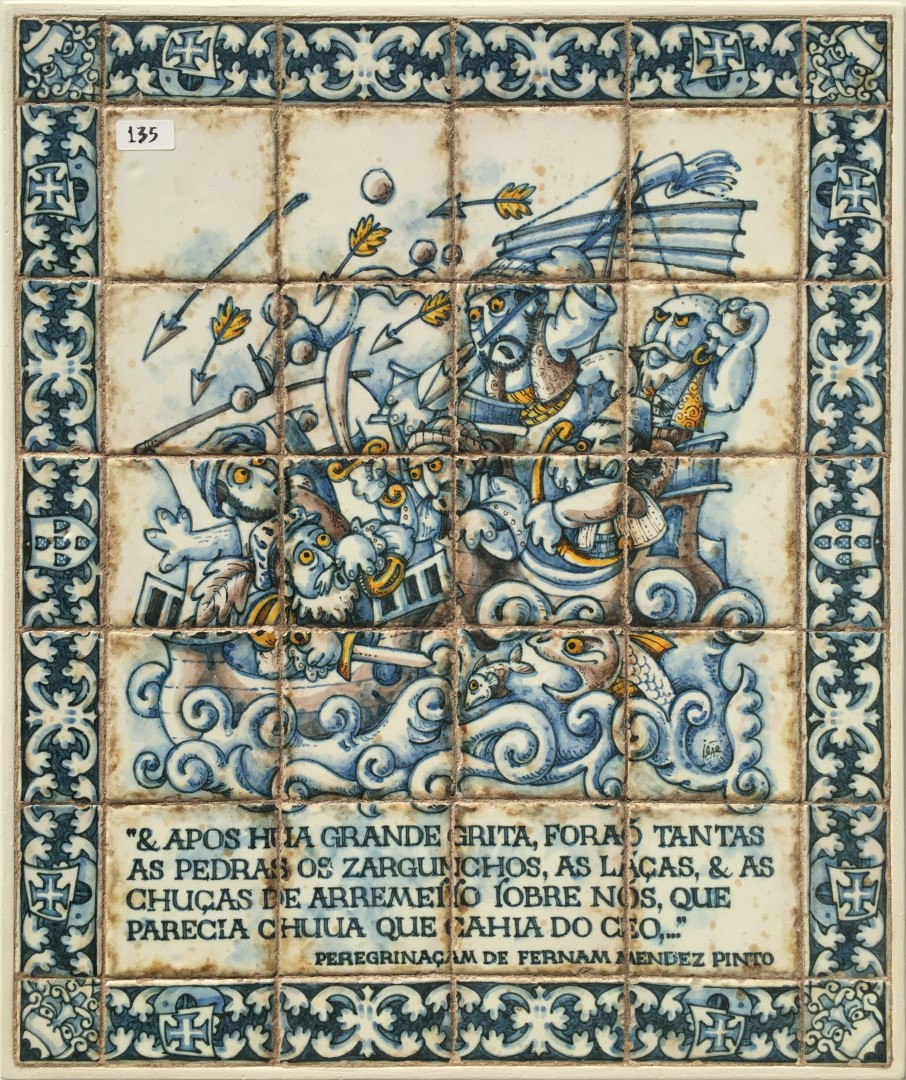 135
"& APOS HŨA GRANDE GRITA, FORAÕ TANTAS
AS PEDRAS OS ZARGUNCHOS, AS LAÇAS, & AS
CHUÇAS DE ARREMEÍÍO ÍOBRE NÓS, QUE
PARECIA CHUUA QUE CAHIA DO CEO,..."
PEREGRINAÇAM DE FERNAM MENDEZ PINTO